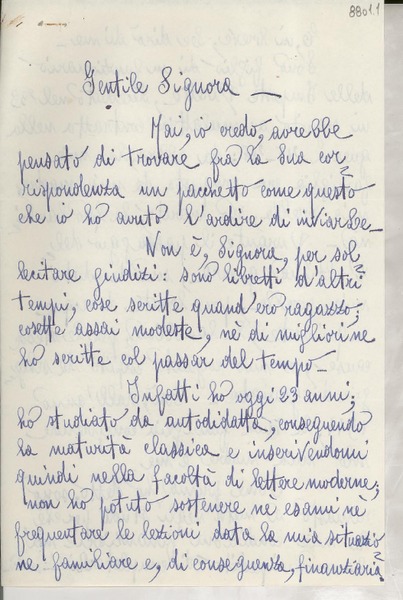 8801.1
Gentile Signora —
Mai, io credo, avrebbe
pensato di trovare fra la Sua cor=
rispondenza un pacchetto come questo
che io ho avuto l'ardire di inviarLe-
Non è, Signora, per sol
lecitare giudizi: sono libretti d'altri
tempi, cose scritte quand'ero ragazzo;
cosette assai modeste, nè di migliori ne
ho scritte col passar del tempo
Infatti ho oggi 23 anni;
ho studiato da autodidatta, conseguendo
la maturità classica e inserivendomi
quindi nella facoltà di lettere moderne;
non ho potuto sostenere nè esami nè
frequentare le lezioni data la mia situazio
ne familiare e, di conseguenza, finanziaria